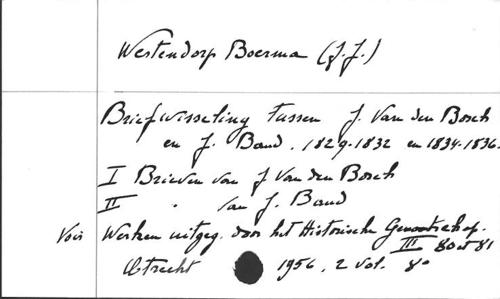 Westendorp Boerma (J.J.)
Briefwisseling tussen J. Van den Bosch
en J. Baud. 1829-1832 en 1834-1836.
I Brieven van J Van den Bosch
II " van J. Baud
Voir Werken uitgeg. door het Historische Genootschap.
III 80 et 81
Utrecht 1956, 2 vol. 8°